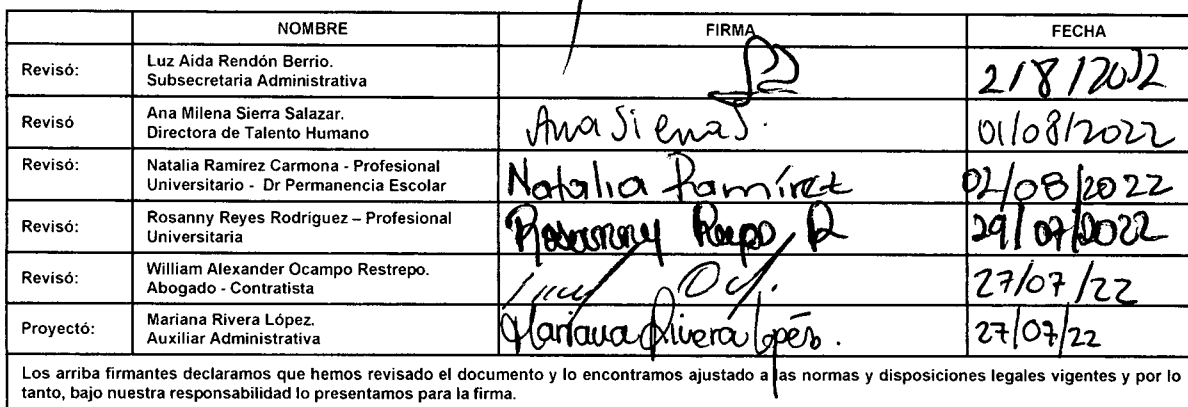 NOMBRE FIRMA FECHA
Revisó: Luz Aida Rendón Berrio.
Subsecretaria Administrativa 2/8/2022
Revisó Ana Milena Sierra Salazar.
Directora de Talento Humano Ana Sierra S. 01/08/2022
Revisó: Natalia Ramírez Carmona - Profesional
Universitario - Dr Permanencia Escolar Natalia Ramírez 02/08/2022
Revisó: Rosanny Reyes Rodríguez – Profesional
Universitaria Rosanny Reyes R 29/07/2022
Revisó: William Alexander Ocampo Restrepo.
Abogado - Contratista 27/07/22
Proyectó: Mariana Rivera López.
Auxiliar Administrativa Mariana Rivera lopés. 27/07/22
Los arriba firmantes declaramos que hemos revisado el documento y lo encontramos ajustado a las normas y disposiciones legales vigentes y por lo
tanto, bajo nuestra responsabilidad lo presentamos para la firma.